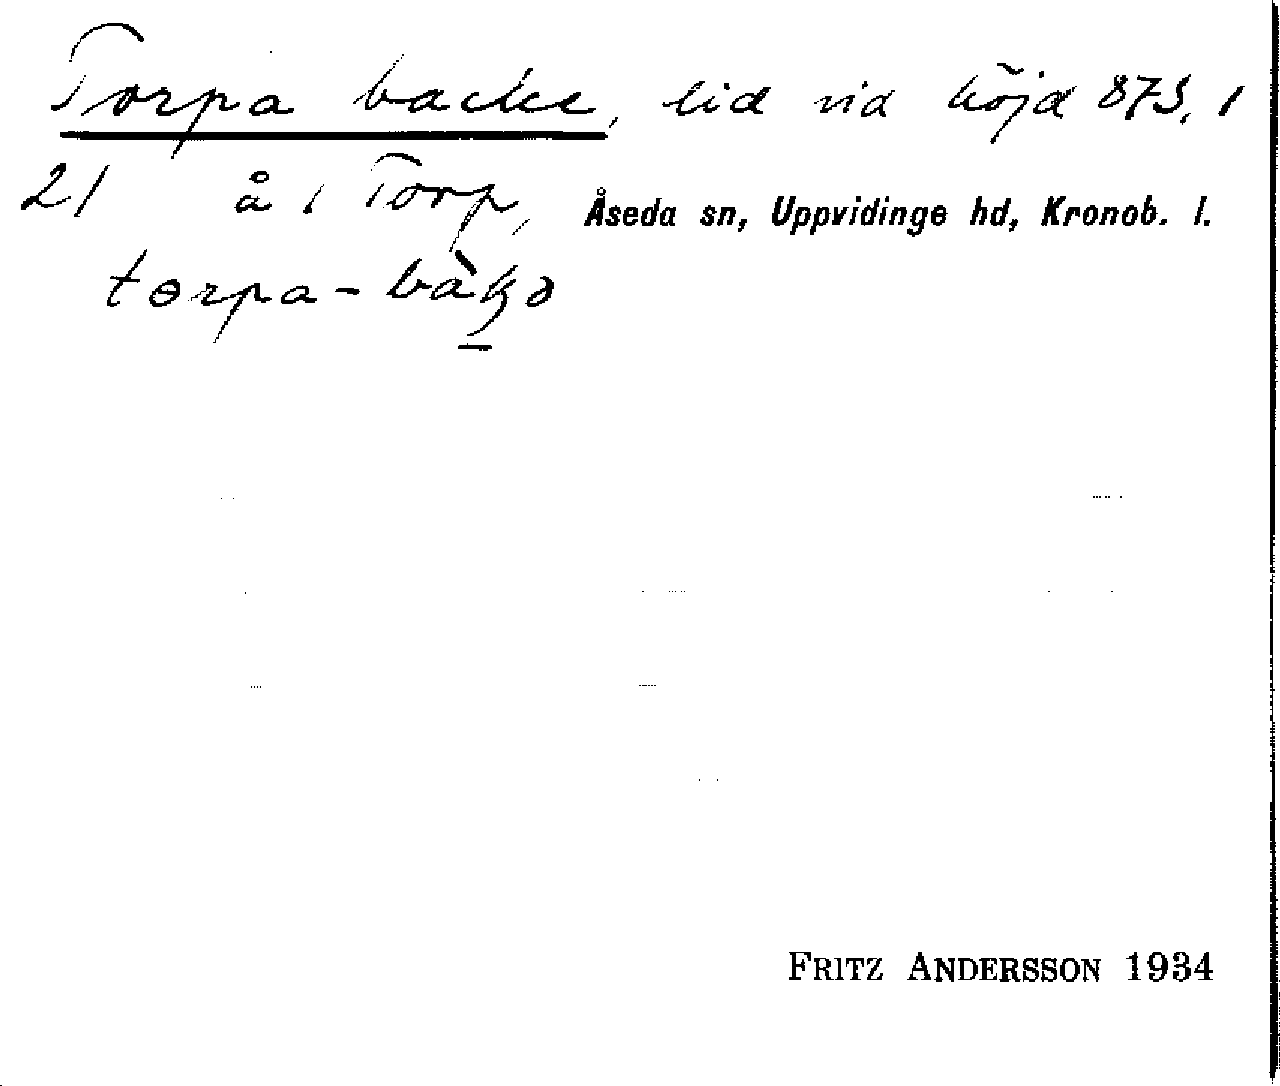 Torpa backe, lid vid höjd 873, 1
21 å 1 Torp, Åseda sn, Uppvidinge hd, Kronob. l.
tɵrpa-bàkə
FRITZ ANDERSSON 1934